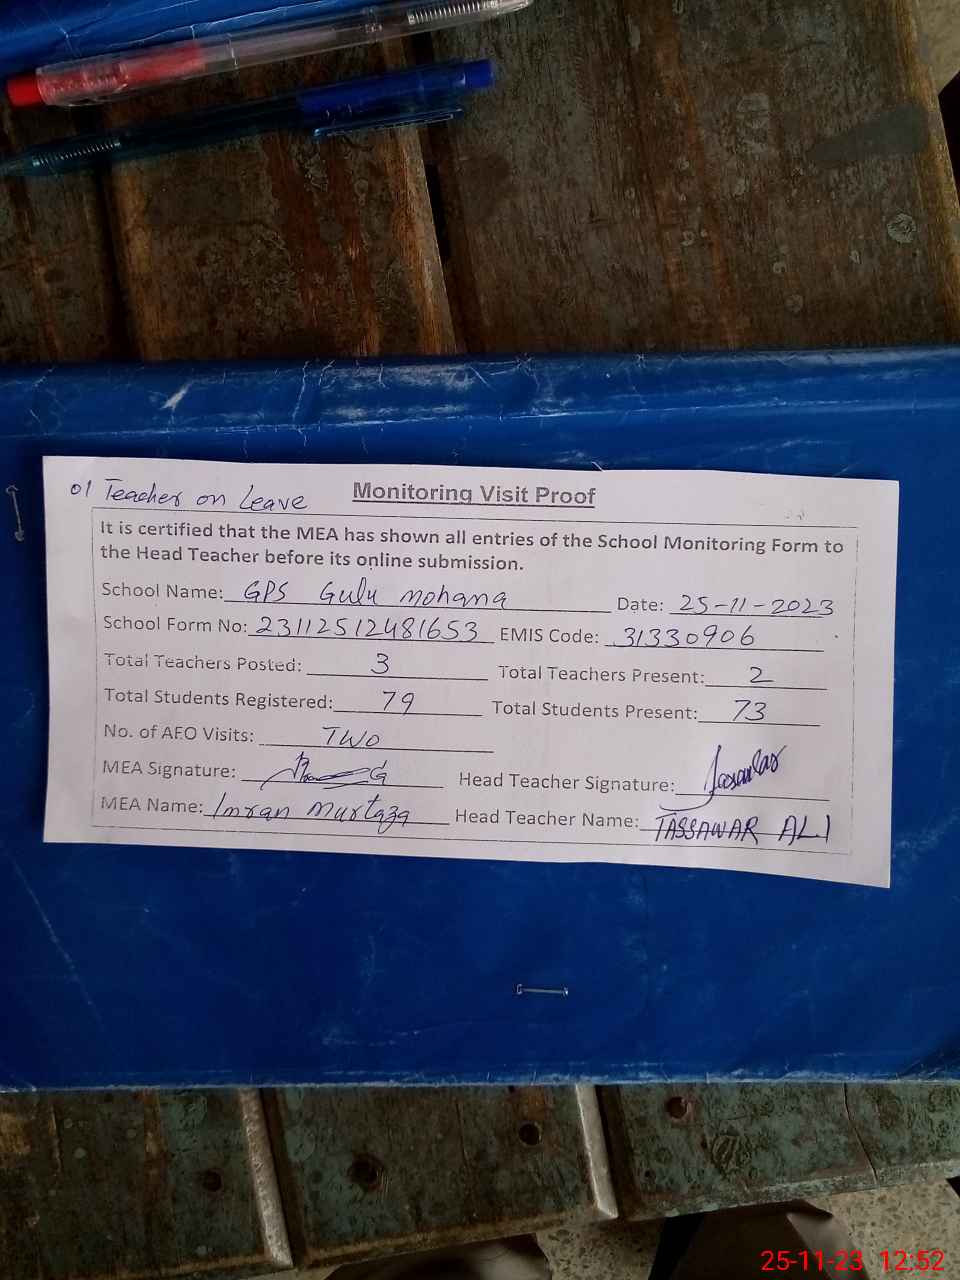 01 Teacher on Leave Monitoring Visit Proof
It is certified that the MEA has shown all entries of the School Monitoring Form to
the Head Teacher before its online submission.
School Name: GPS Gulu mohana Date: 25-11-2023
School Form No: 23112512481653 EMIS Code: 31330906
Total Teachers Posted: 3 Total Teachers Present: 2
Total Students Registered: 79 Total Students Present: 73
No. of AEO Visits: TWO
MEA Signature: Head Teacher Signature:
MEA Name: Imran Murtaza Head Teacher Name: TASSAWAR ALI
25-11-23 12:52